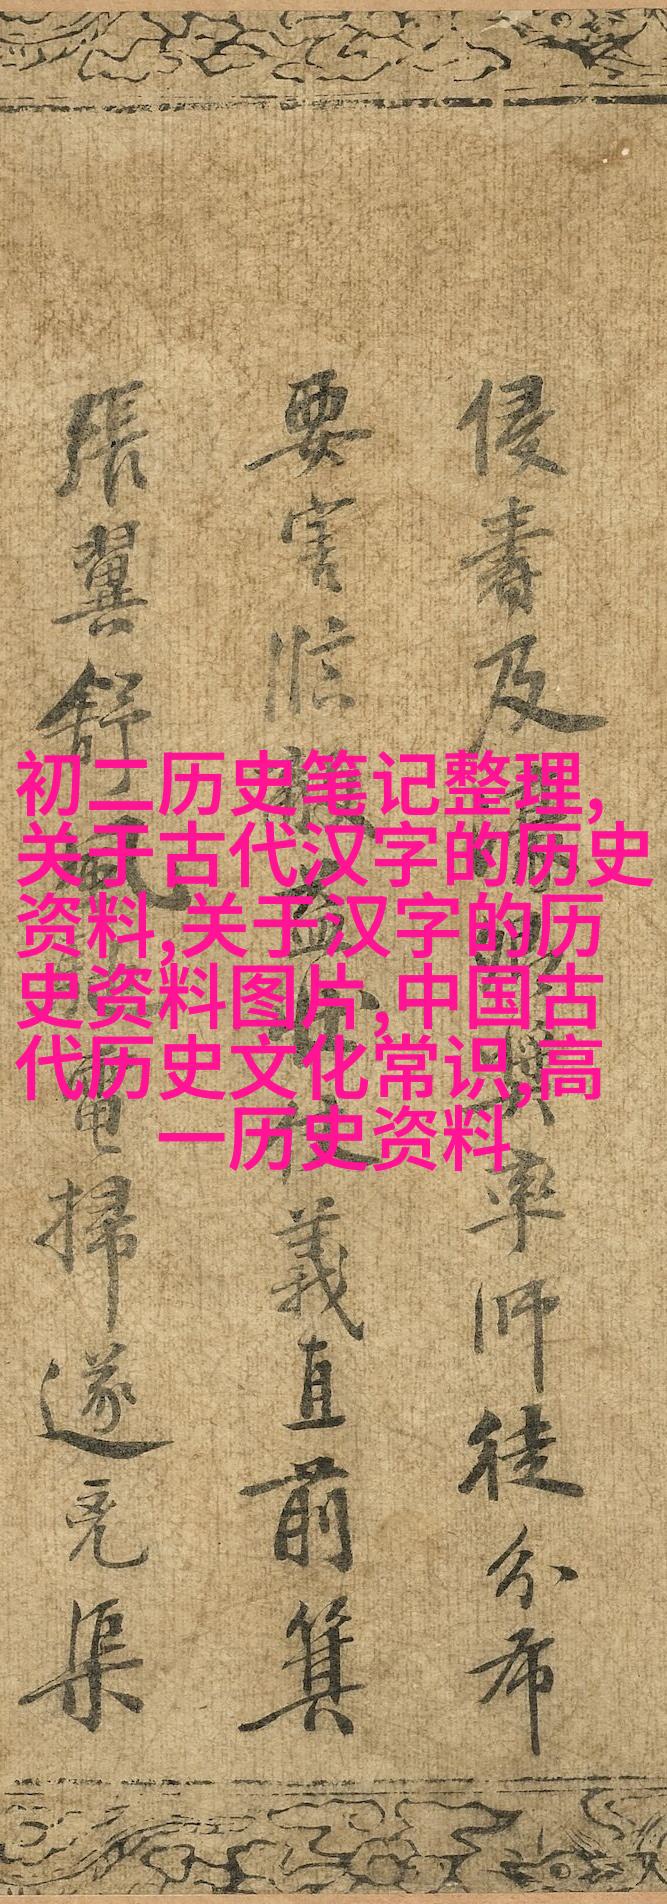 初二历史笔记整理,
关于古代汉字的历史
资料,关于汉字的历
史资料图片,中国古
代历史文化常识,高
一历史资料
侵書及
率师徒分布
要害临
益
義直前箕
張翼舒風
電掃遂
渠